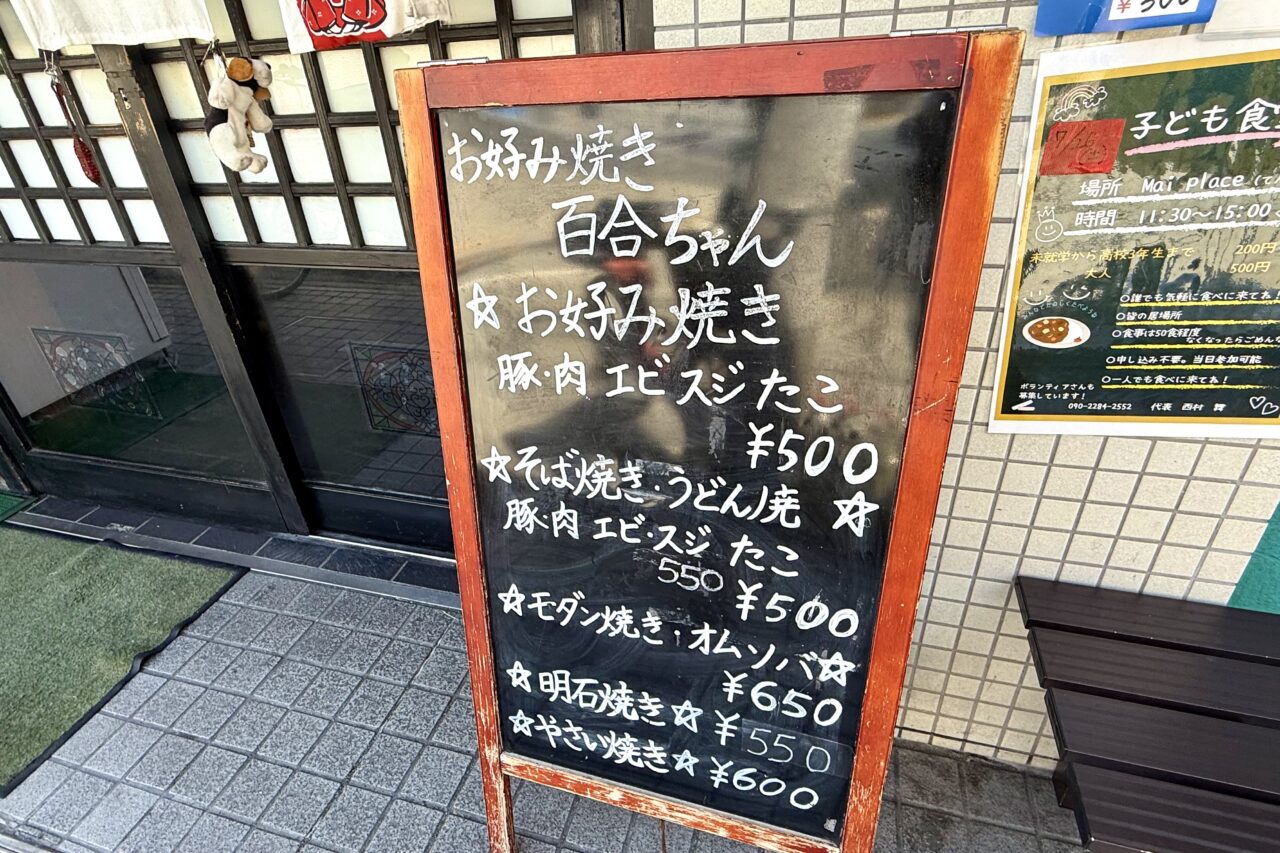 お好み焼き
百合ちゃん
☆お好み焼き
豚・肉 エビ スジ たこ
¥500
☆そば焼き・うどん焼☆
豚・肉 エビ・スジ たこ
550 ¥500
☆モダン焼き・オムソバ☆
¥650
☆明石焼き☆ ¥550
☆やさい焼き☆ ¥600
¥500
子ども食
場所 Mai place
時間 11:30〜15:00
未就学から高校3年生まで 200円
大人 500円
○誰でも気軽に食べに来てね
○皆の居場所
○食事は50食程度
なくなったらごめん
○申し込み不要。当日参加可能
○一人でも食べに来てね!
ボランティアさんも
募集しています!
090-2284-2552 代表 西村 舞